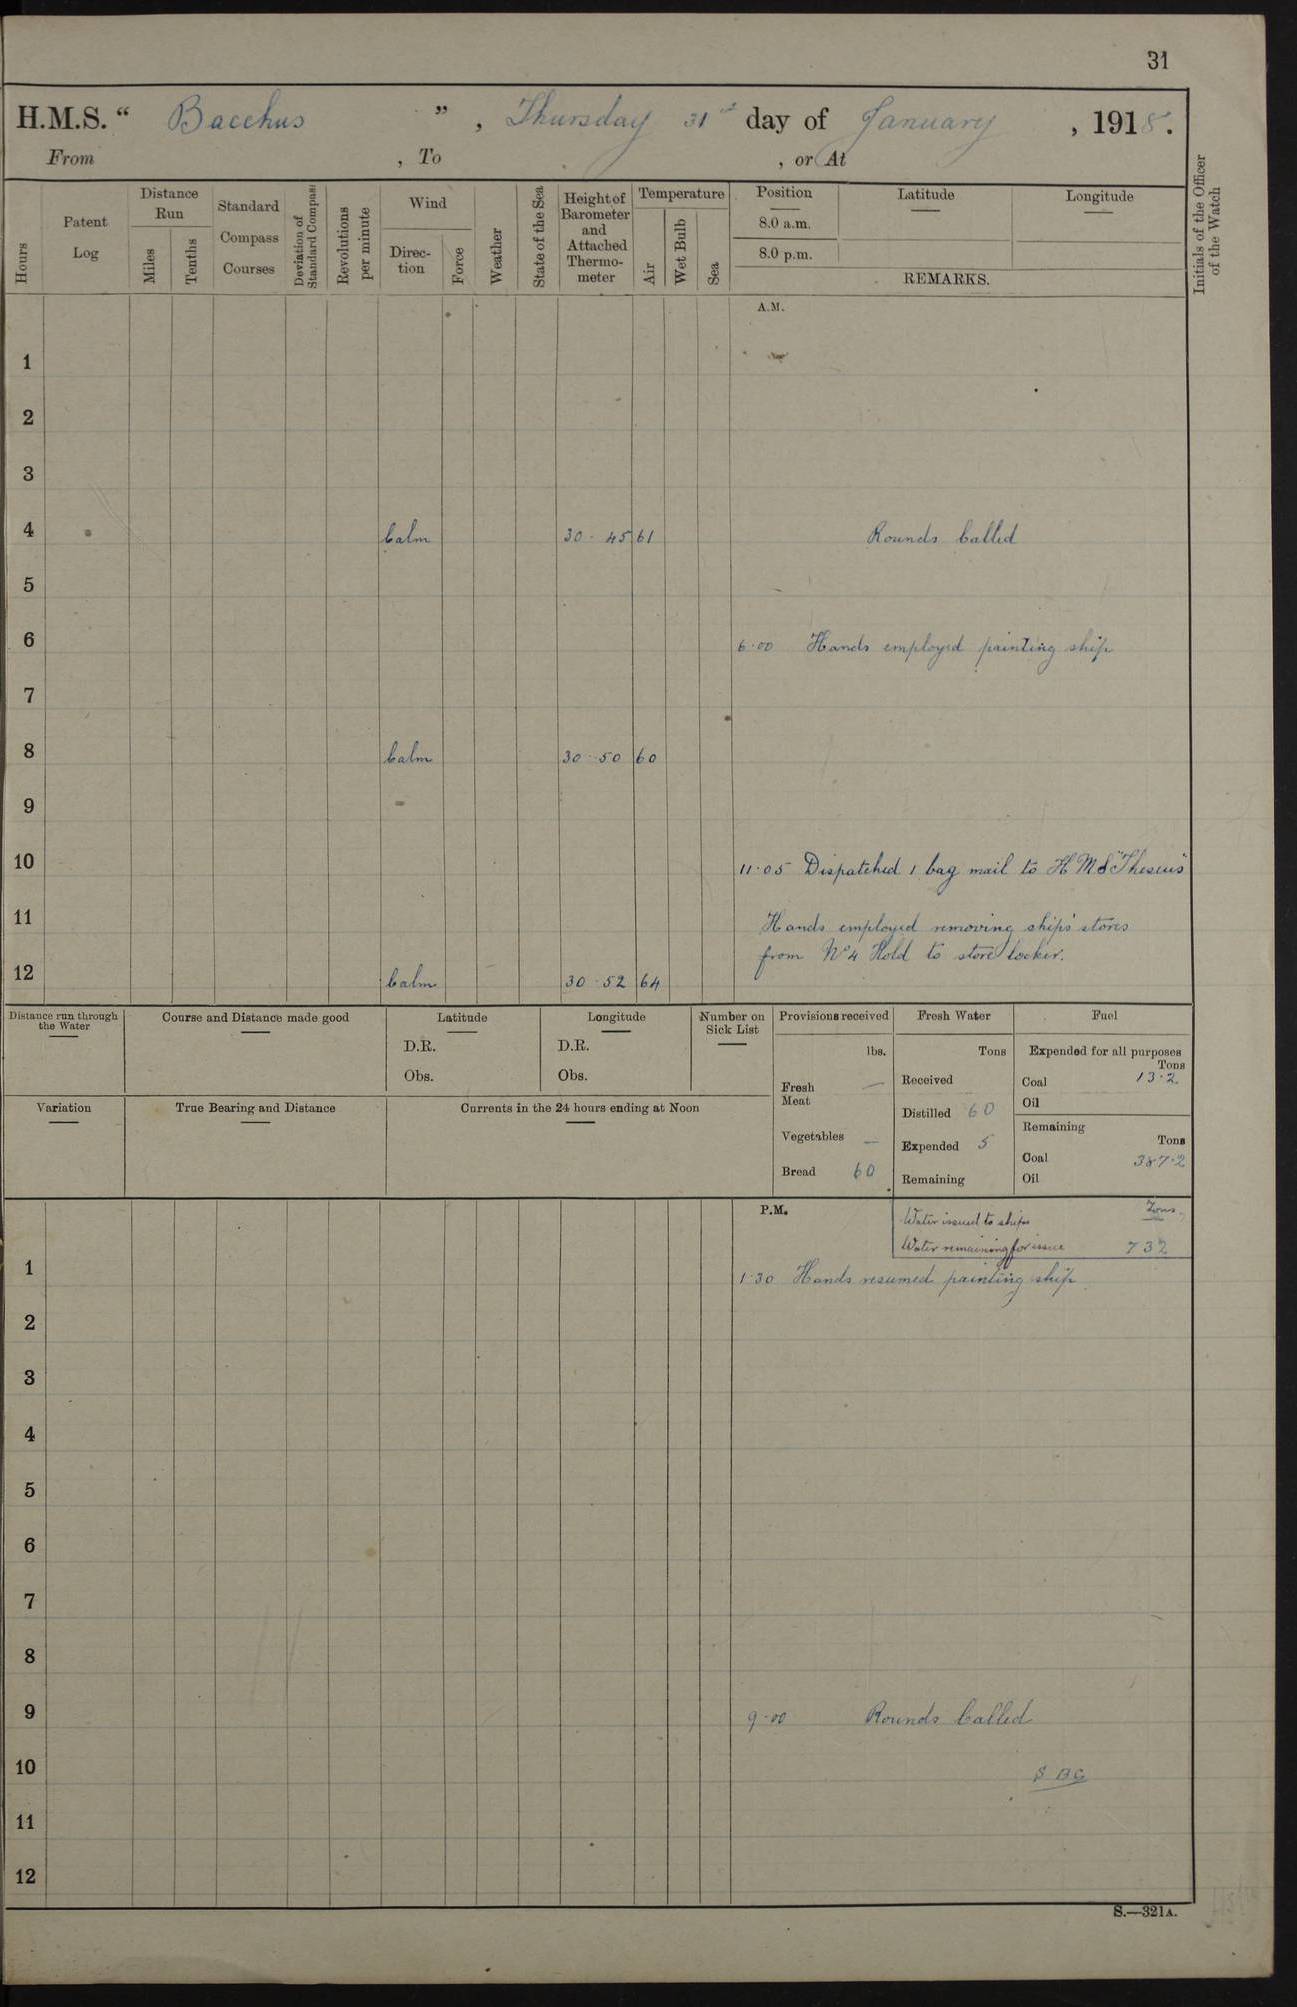 31
H.M.S. “ Bacchus ” , Thursday 31st day of January , 1918.
From , To , or At
Hours
Patent Log
Distance Run
Miles
Tenths
Standard Compass Courses
Deviation of Standard Compass
Revolutions per minute
Wind
Direc-tion
Force
Weather
State of the Sea
Height of Barometer and Attached Thermo-meter
Temperature
Air
Wet Bulb
Sea
Position
8.0 a.m.
8.0 p.m.
Latitude
Longitude
REMARKS.
Initials of the Officer of the Watch
A.M.
1
2
3
4 Calm 30·45 61 Rounds Called
5
6 6·00 Hands employed painting ship
7
8 Calm 30·50 60
9
10 11·05 Dispatched 1 bag mail to H M S "Theseus"
11 Hands employed removing ships' stores
from No 4 Hold to store locker.
12 Calm 30·52 64
Distance run through the Water
Course and Distance made good
Latitude
D.R.
Obs.
Longitude
D.R.
Obs.
Number on Sick List
Provisions received
lbs.
Fresh Meat —
Vegetables —
Bread 60
Fresh Water
Tons
Received
Distilled 60
Expended 5
Remaining
Fuel
Expended for all purposes
Tons
Coal 13·2
Oil
Remaining
Tons
Coal 387·2
Oil
Variation
True Bearing and Distance
Currents in the 24 hours ending at Noon
P.M.
Water issued to ships Tons
Water remaining for issue 732
1 1·30 Hands resumed painting ship
2
3
4
5
6
7
8
9 9·00 Rounds Called
10
11
12
S.—321A.